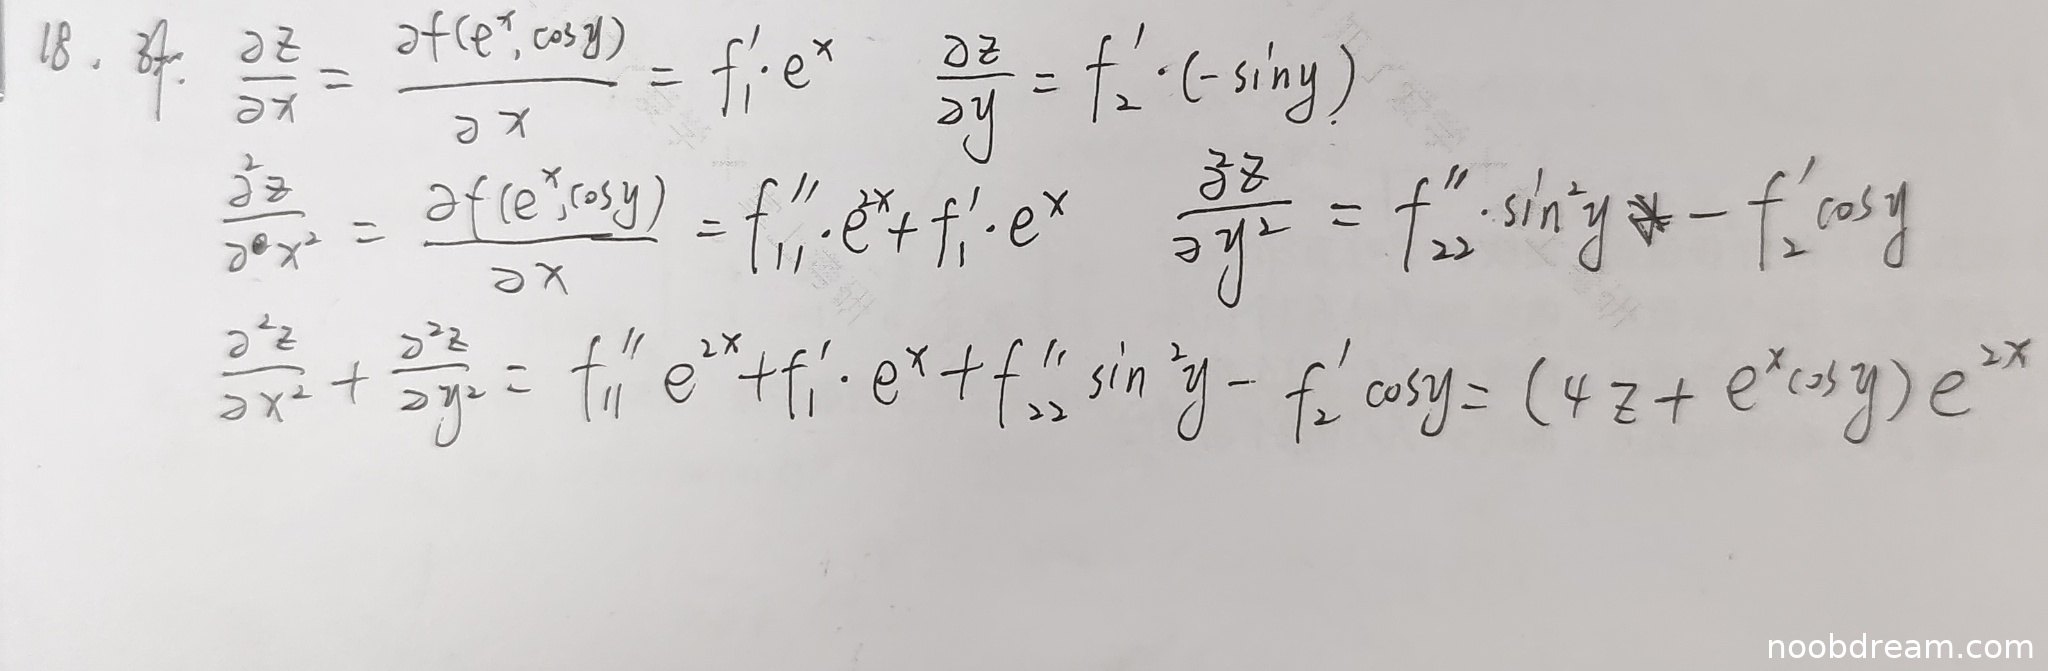 18. 解: ∂z/∂x = ∂f(e^x, cosy)/∂x = f₁′·e^x ∂z/∂y = f₂′·(-siny).
∂²z/∂x² = ∂f(e^x, cosy)/∂x = f₁₁″·e^{2x} + f₁′·e^x ∂²z/∂y² = f₂₂″·sin²y - f₂′cosy
∂²z/∂x² + ∂²z/∂y² = f₁₁″ e^{2x} + f₁′·e^x + f₂₂″ sin²y - f₂′ cosy = (4z + e^x cosy) e^{2x}
noobdream.com